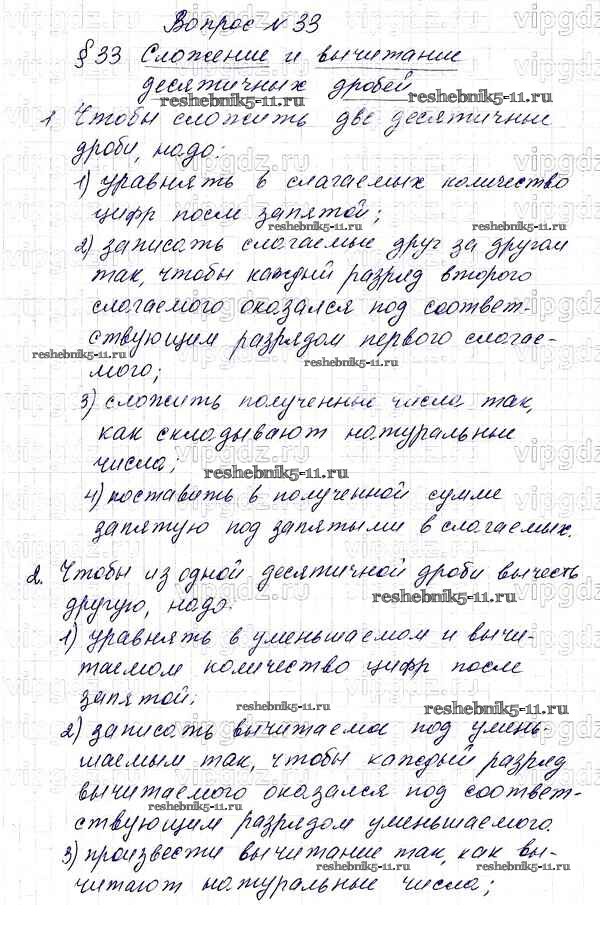 Вопрос №33
§33 Сложение и вычитание
десятичных дробей
reshebnik5-11.ru
1. Чтобы сложить две десятичные
дроби, надо:
1) уравнять в слагаемых количество
цифр после запятой;
reshebnik5-11.ru
2) записать слагаемые друг за другом
так, чтобы каждый разряд второго
слагаемого оказался под соответ-
ствующим разрядом первого слагае-
reshebnik5-11.ru
reshebnik5-11.ru
мого;
3) сложить полученные числа так,
как складывают натуральные
числа;
reshebnik5-11.ru
4) поставить в полученной сумме
запятую под запятыми в слагаемых.
2. Чтобы из одной десятичной дроби вычесть
другую, надо:
reshebnik5-11.ru
1) уравнять в уменьшаемом и вычи-
таемом количество цифр после
запятой;
reshebnik5-11.ru
2) записать вычитаемое под умень-
шаемым так, чтобы каждый разряд
вычитаемого оказался под соответ-
reshebnik5-11.ru
ствующим разрядом уменьшаемого.
3) произвести вычитание так, как вы-
reshebnik5-11.ru
читают натуральные числа;